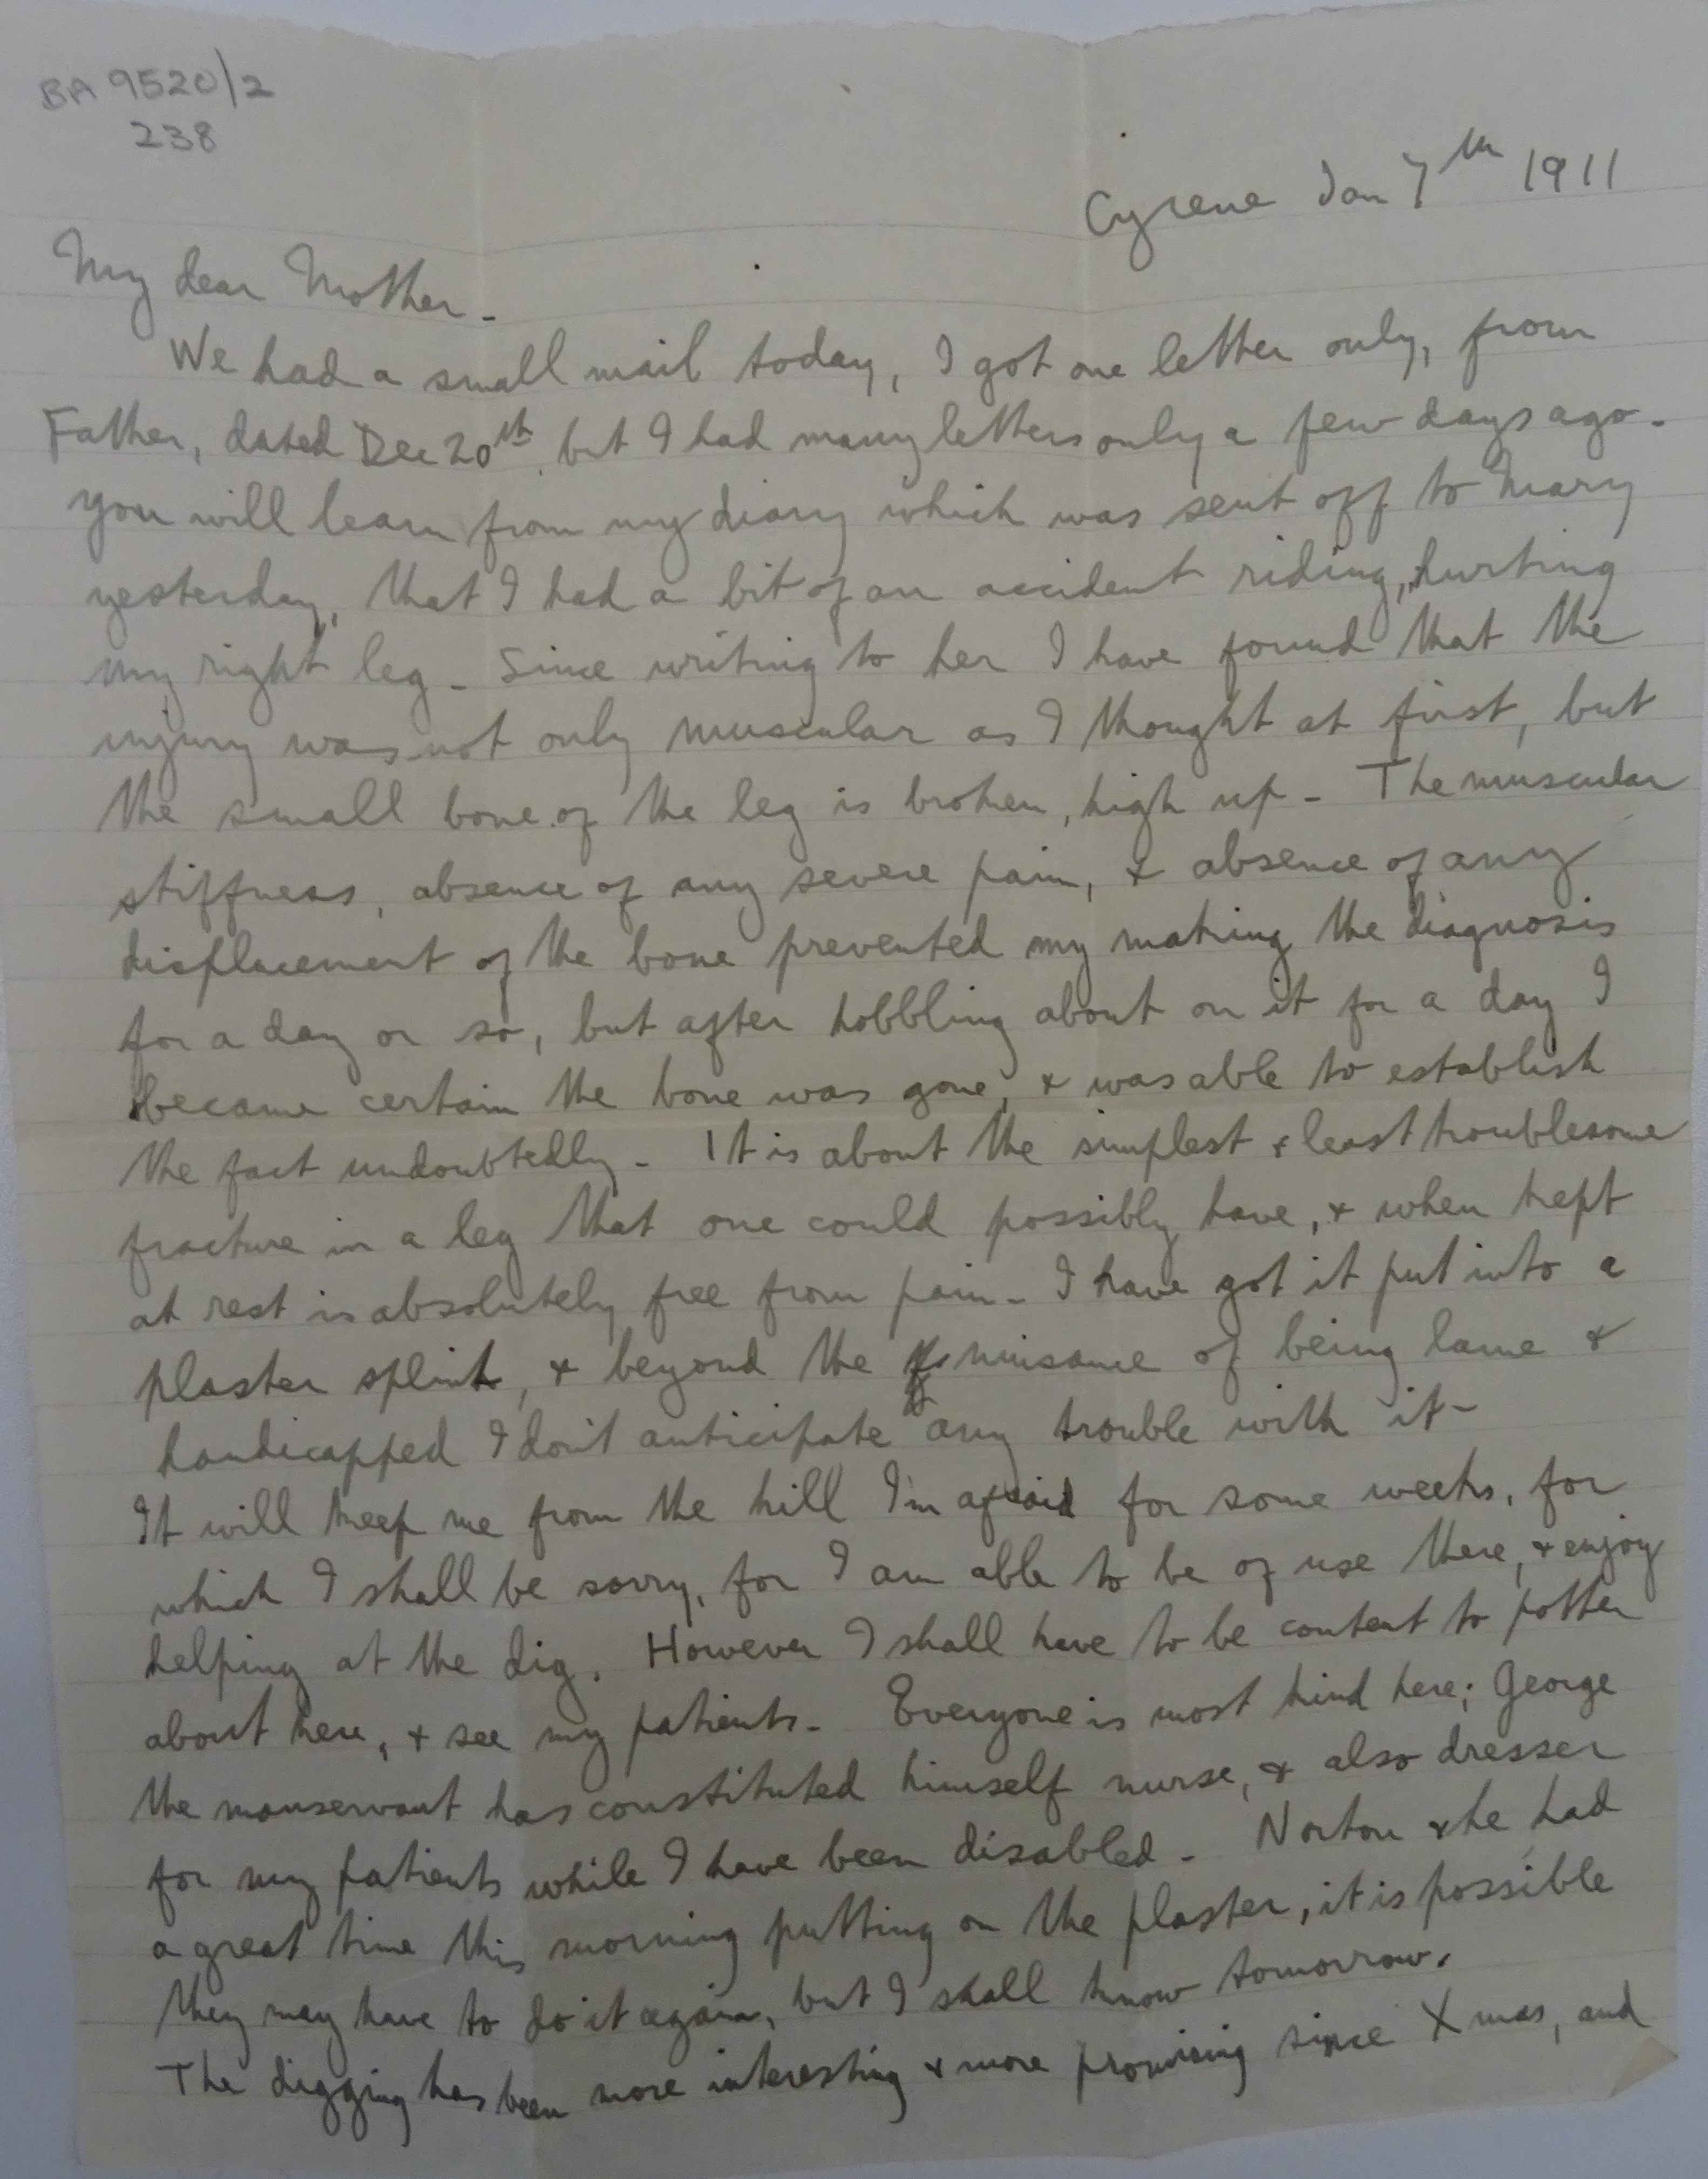 BA 9520/2
238
Cyrene Jan 7th 1911
My dear Mother -
We had a small mail today, I got one letter only, from
Father, dated Dec 20th, but I had many letters only a few days ago -
you will learn from my diary which was sent off to Mary
yesterday, that I had a bit of an accident riding, hurting
my right leg - Since writing to her I have found that the
injury was not only muscular as I thought at first, but
the small bone of the leg is broken, high up - The muscular
stiffness, absence of any severe pain, & absence of any
displacement of the bone prevented my making the diagnosis
for a day or so, but after hobbling about on it for a day I
became certain the bone was gone, & was able to establish
the fact undoubtedly - It is about the simplest & least troublesome
fracture in a leg that one could possibly have, & when kept
at rest is absolutely free from pain - I have got it put into a
plaster splint, & beyond the nuisance of being lame &
handicapped I don't anticipate any trouble with it -
It will keep me from the hill I'm afraid for some weeks, for
which I shall be sorry, for I am able to be of use there, & enjoy
helping at the dig. However I shall have to be content to potter
about here, & see my patients - Everyone is most kind here; George
the manservant has constituted himself nurse, & also dresser
for my patients while I have been disabled - Norton & he had
a great time this morning putting on the plaster, it is possible
they may have to do it again, but I shall know tomorrow.
The digging has been more interesting & more promising since Xmas, and